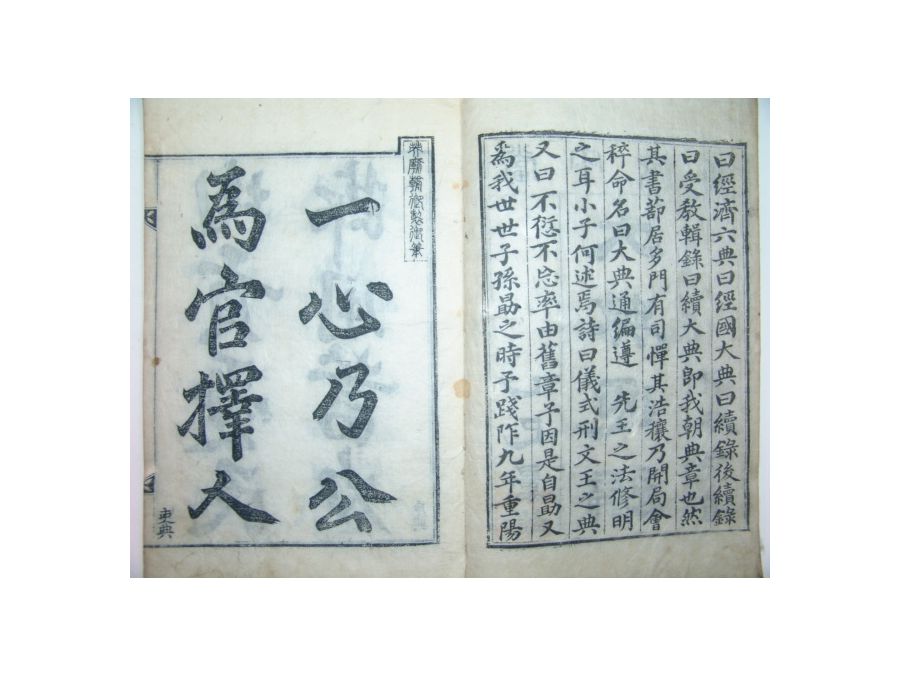 曰經濟六典曰經國大典曰續錄後續錄
曰受敎輯錄曰續大典卽我朝典章也然
其書蔀居多門有司憚其浩穰乃開局會
稡命名曰大典通編遵　先王之法修明
之耳小子何述焉詩曰儀式刑文王之典
又曰不愆不忘率由舊章予因是自勗又
爲我世世子孫勗之時予踐阼九年重陽
英廟朝御製御筆
一心乃公
爲官擇人
吏典